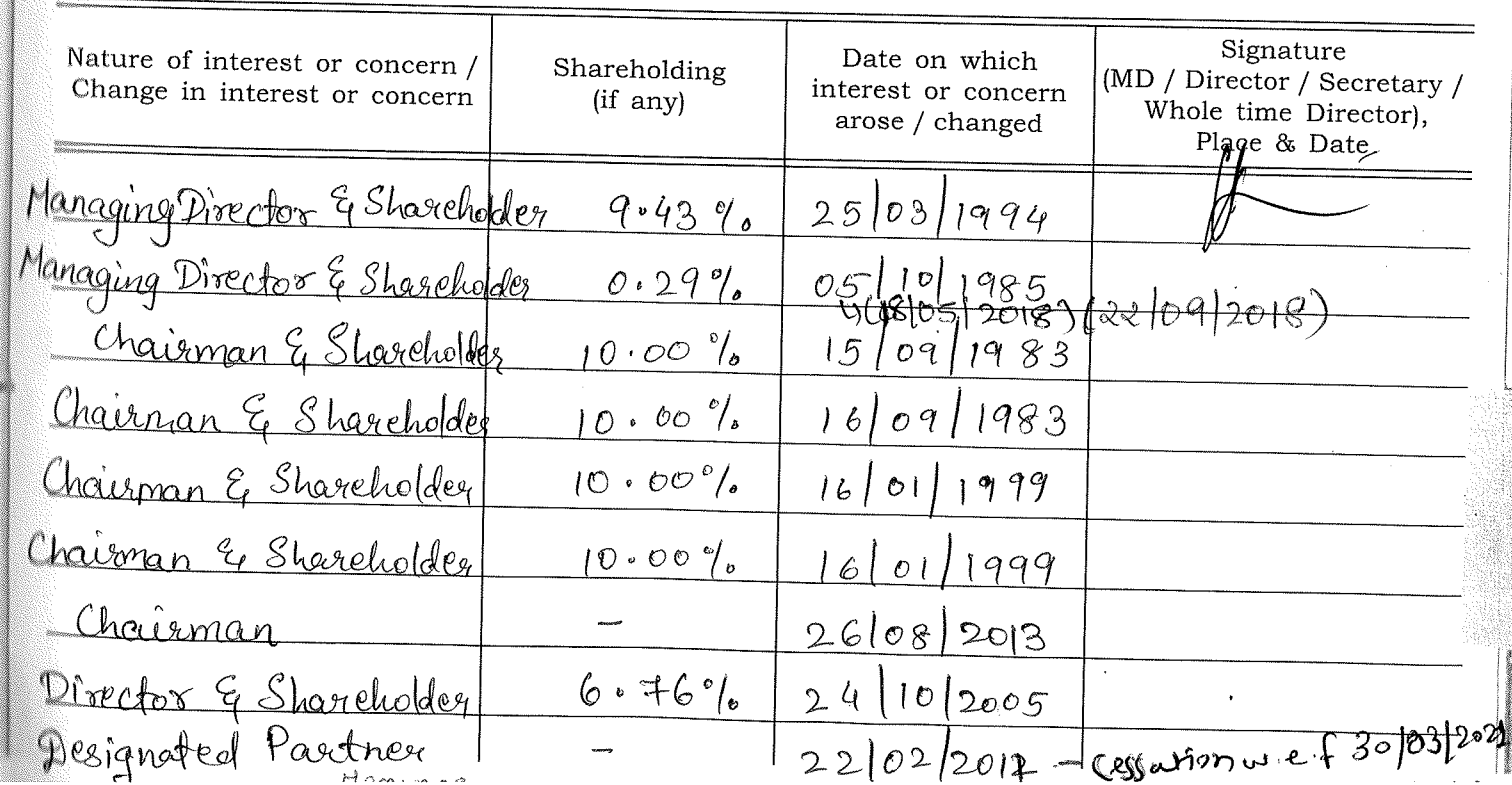 Nature of interest or concern / Change in interest or concern
Shareholding (if any)
Date on which interest or concern arose / changed
Signature (MD / Director / Secretary / Whole time Director), Place & Date
Managing Director & Shareholder 9.43 % 25/03/1994
Managing Director & Shareholder 0.29% 05/10/1985
(18/05/2018) (22/09/2018)
Chairman & Shareholder 10.00 % 15/09/1983
Chairman & Shareholder 10.00 % 16/09/1983
Chairman & Shareholder 10.00% 16/01/1999
Chairman & Shareholder 10.00% 16/01/1999
Chairman – 26/08/2013
Director & Shareholder 6.76% 24/10/2005
Designated Partner – 22/02/2017 – Cessation w.e.f 30/03/2021